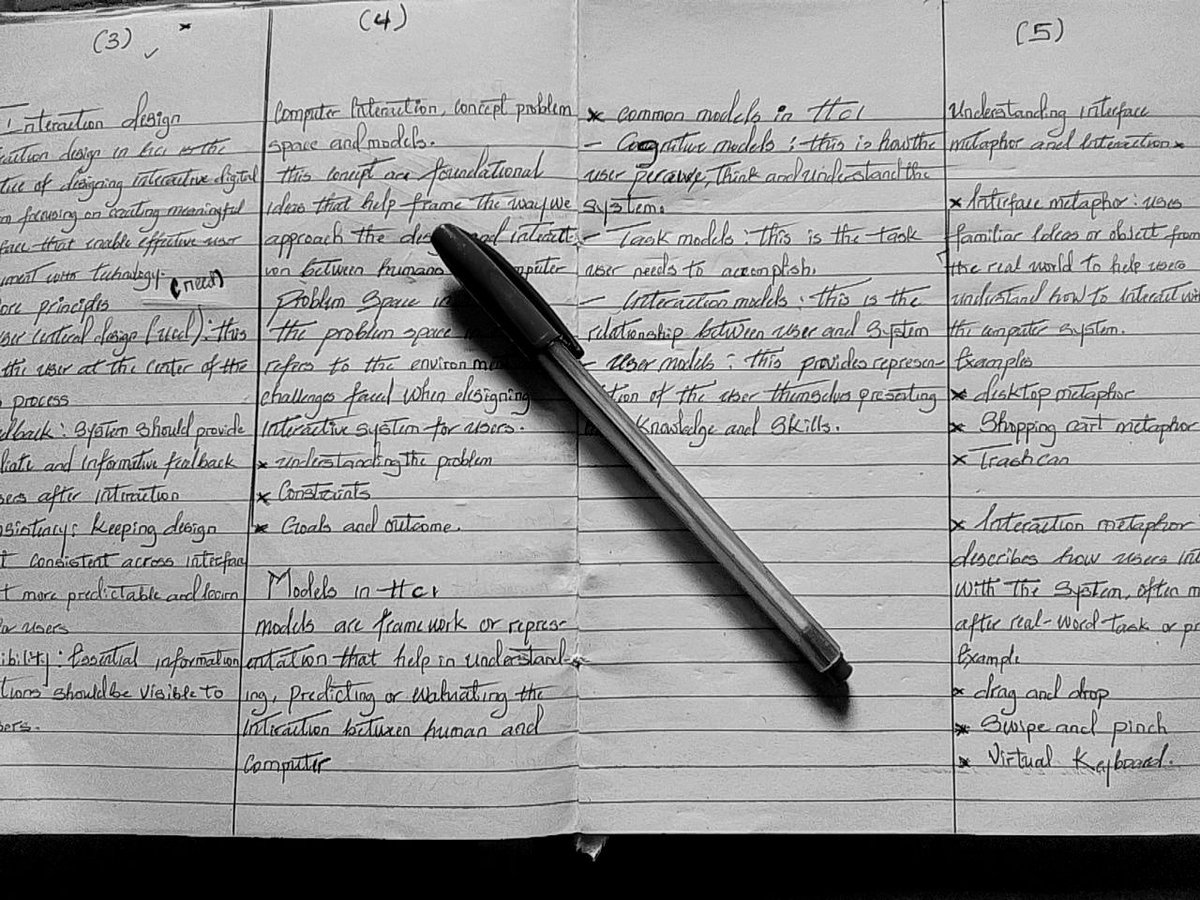 (3)
Interaction design
design in HCI is the
of designing interactive digital
focusing on creating meaningful
that enable effective user
with technology.
(need)
principles
design (ucd): this
the user at the center of the
process
: System should provide
and informative feedback
after interaction
: Keeping design
consistent across interfac
more predictable and learn
users
: Essential information
should be visible to
(4)
Computer Interaction, concept problem
space and models.
this concept are foundational
ideas that help frame the way we
approach the and interact-
ion between humans
Problem Space in
the problem space
refers to the environ
challenges faced when designing
interactive system for users.
* understanding the problem
* Constraints
* Goals and outcome.
Models in HCI
models are framework or repres-
entation that help in understand-
ing, Predicting or evaluating the
interaction between human and
Computer
* common models in HCI
- Cognitive models : this is how the
user perceive, think and understand the
System.
- Task models : this is the task
user needs to accomplish.
- Interaction models : this is the
relationship between user and System
- User models : this provides represen-
tion of the user themselves presenting
Knowledge and Skills.
(5)
Understanding interface
metaphor and Interaction
* Interface metaphor : uses
familiar Ideas or object from
the real world to help users
understand how to interact
the computer system.
Examples
* desktop metaphor
* Shopping cart metaphor
* Trashcan
* Interaction metaphor
describes how users
With the System, often
after real-word-task or
Example
* drag and drop
* Swipe and pinch
* Virtual Keyboard.